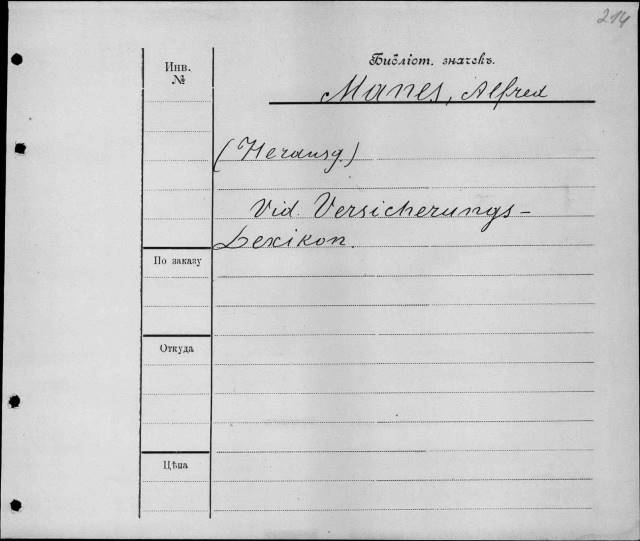 214
Инв.
№
Библіот. значекъ.
Manes, Alfred
(Herausg.)
Vid. Versicherungs-
Lexikon.
По заказу
Откуда
Цѣна